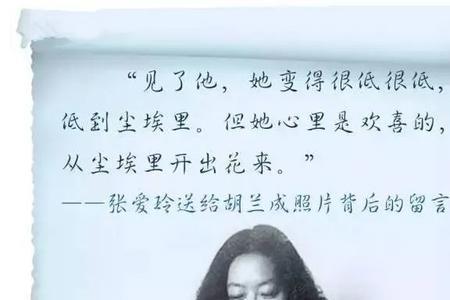 “见了他，她变得很低很低，
低到尘埃里。但她心里是欢喜的，
从尘埃里开出花来。”
——张爱玲送给胡兰成照片背后的留言